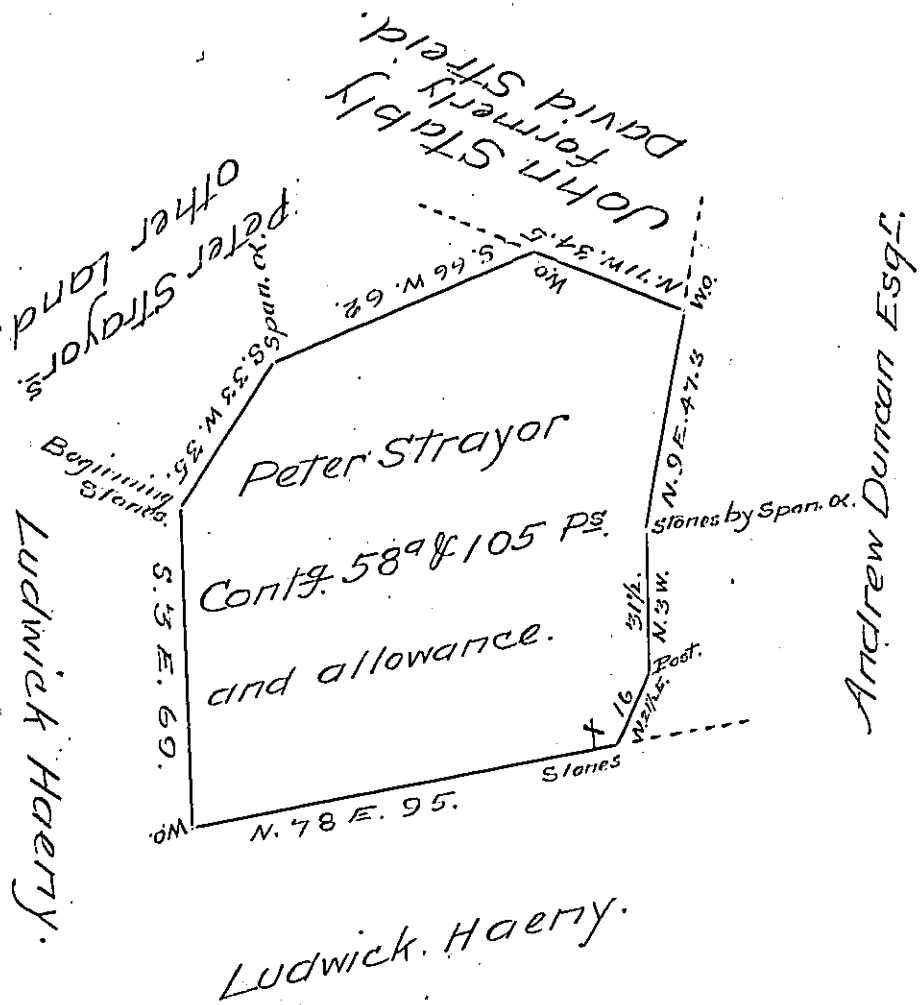 John Stably
formerly
David Streid.
Peter Strayor's
other Land.
Andrew Duncan Esqr.
Ludwick Haeny.
Ludwick. Haeny.
Peter Strayor
Contg. 58a & 105 Ps.
and allowance.
Beginning
Stones.
S. 33 W. 35.
Span. ox.
S. 66 W. 62.
W.o
N. 71 W. 34.5
W.o.
N. 9 E. 47.3
Stones by Span. ox.
31½.
N. 3 W.
Post.
16
Stones
N. 78 E. 95.
W.o.
S. 3 E. 69.